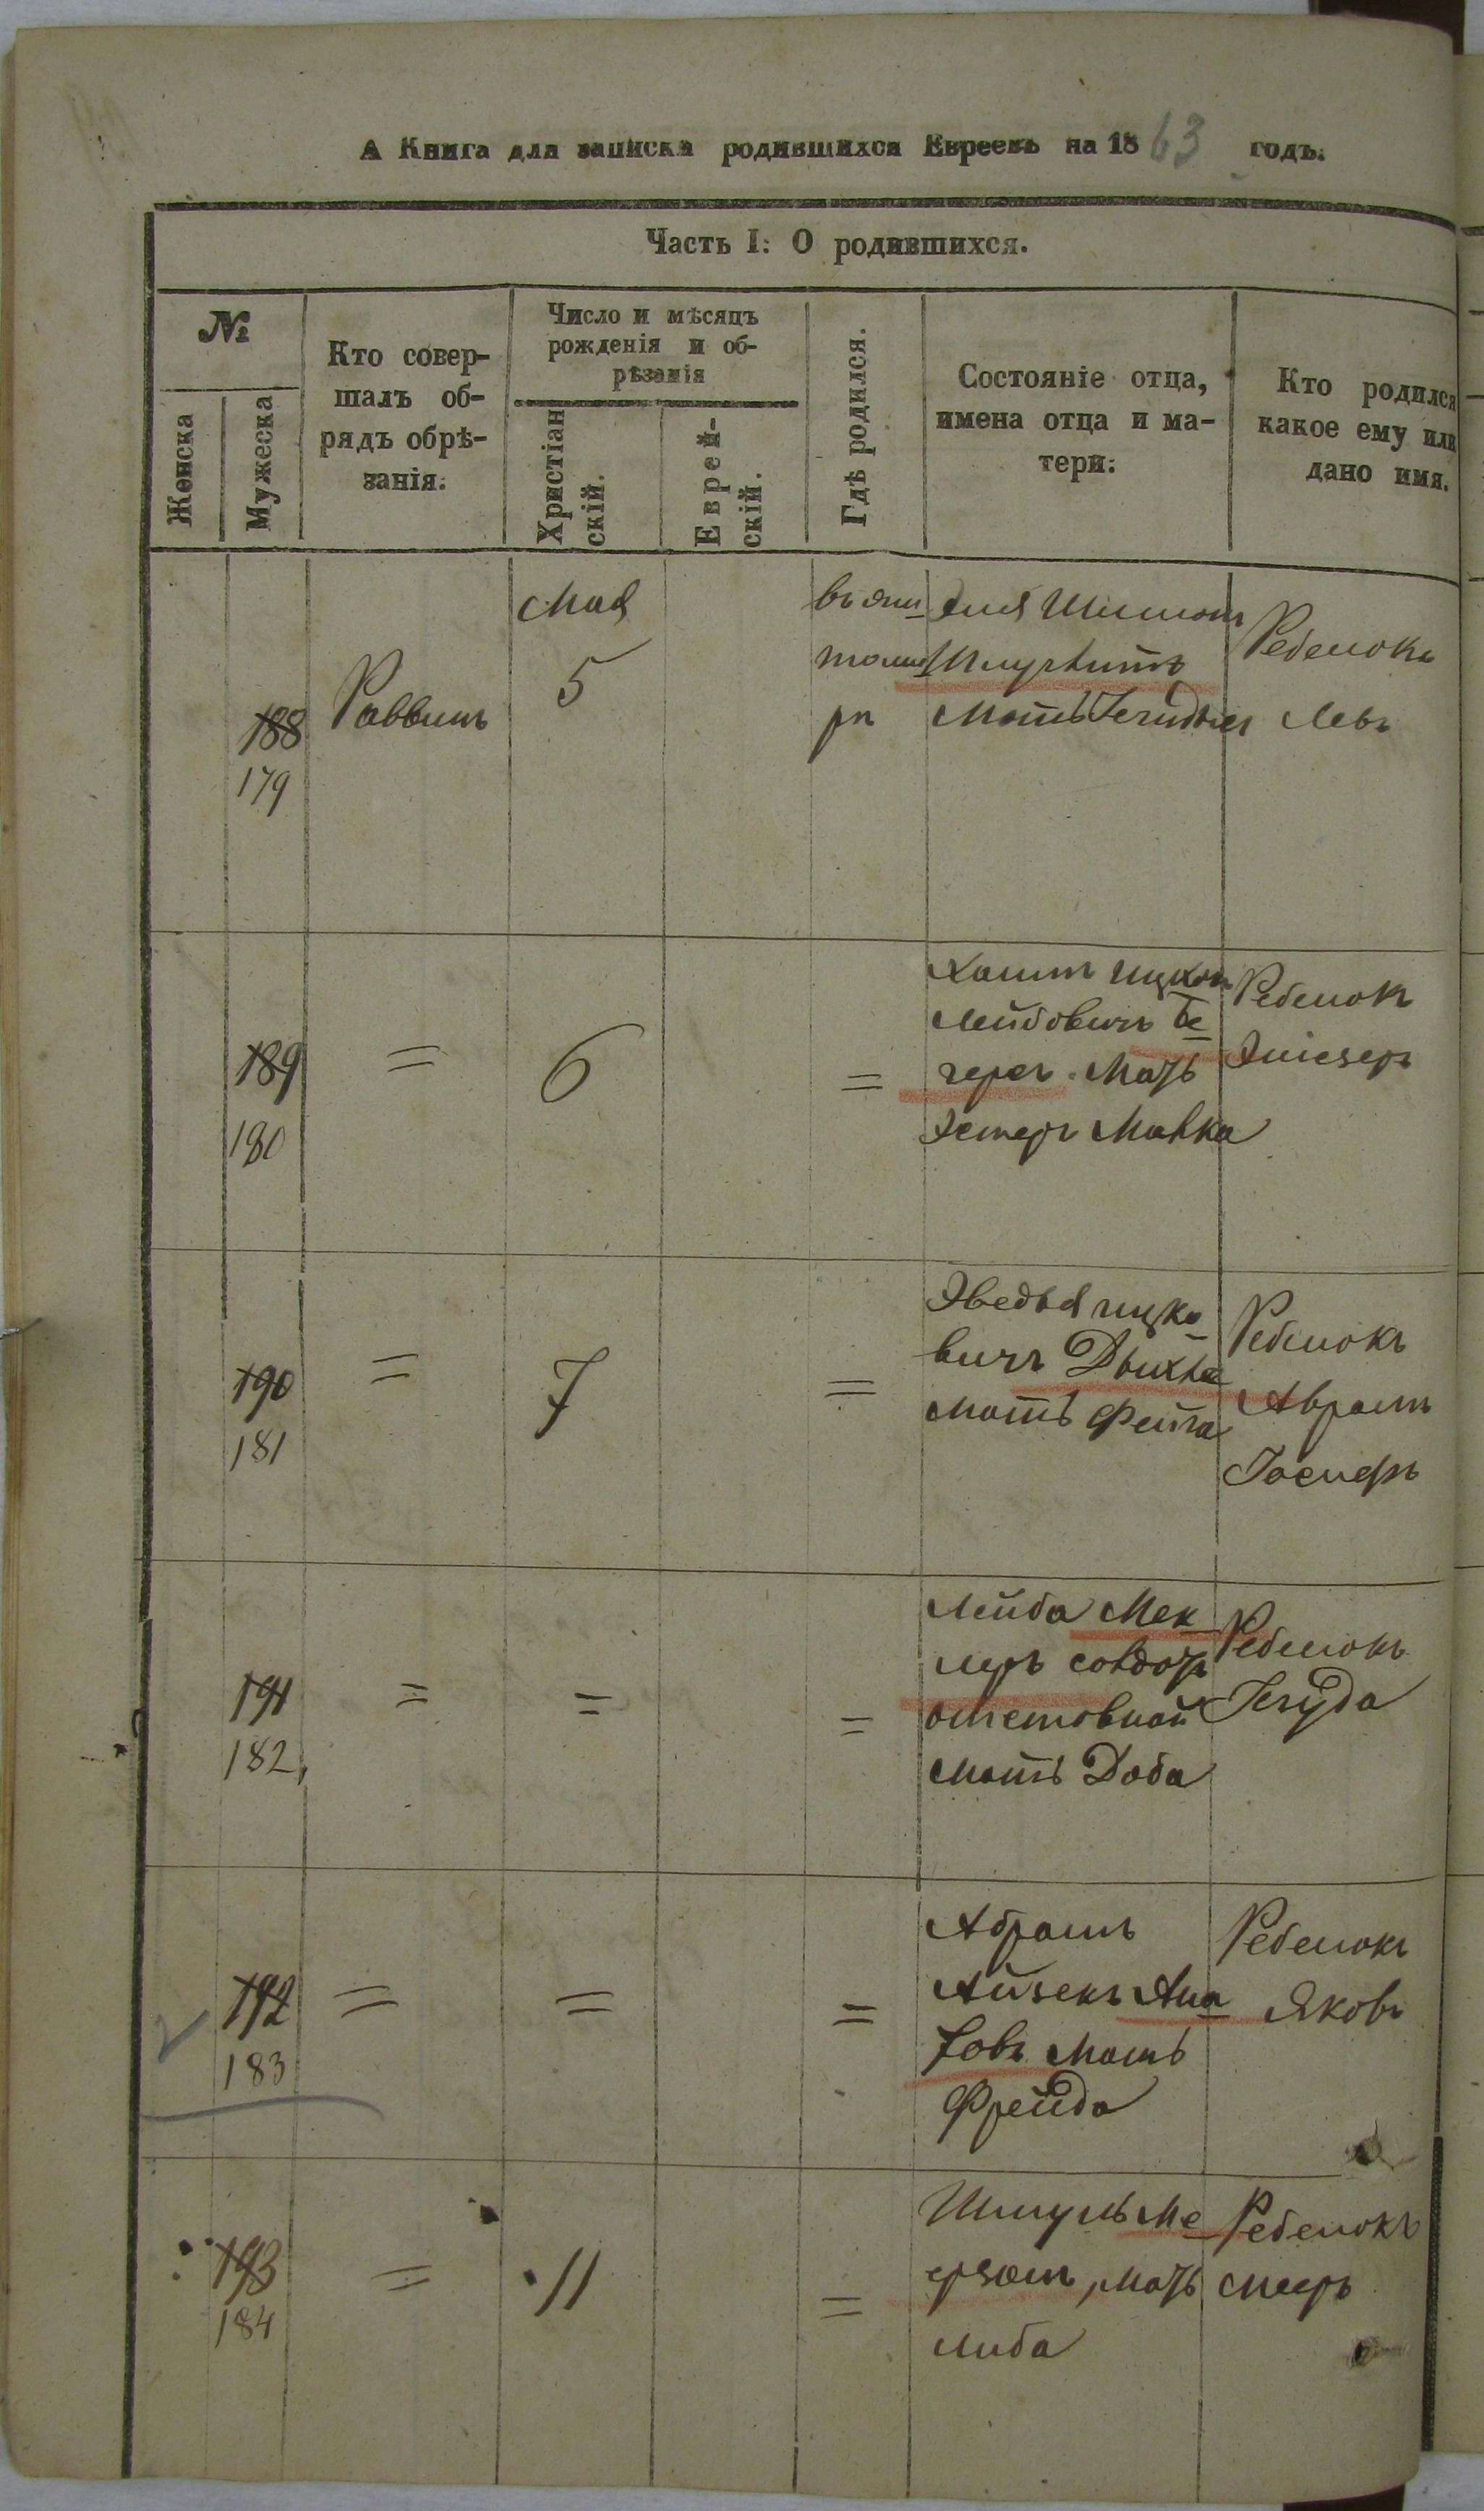 А Книга для записки родившихся Евреевъ на 1863 годъ.
Часть I: О родившихся.
№
Женска
Мужеска
Кто совер-
шалъ об-
рядъ обрѣ-
занія.
Число и мѣсяцъ
рожденія и об-
рѣзанія
Христіан
скій.
Еврей-
скій.
Гдѣ родился.
Состояніе отца,
имена отца и ма-
тери.
Кто родился
какое ему или
дано имя.
188
179
Раввинъ
Мая
5
въ
Мать
Ребенокъ
Левъ
189
180
=
6
=
Хаимъ Ицкоп
Лейбовичъ Бе
черъ. Мать
Эстеръ Малка
Ребенок
Эліезеръ
190
181
=
7
=
Ицко
вичъ
Мать Фейга
Ребенокъ
Абрамъ
Іосифъ
191
182
=
=
=
Лейба Мек
леръ солдатъ
отставной
Мать Доба
Ребенокъ
Іегуда
192
183
=
=
=
Абрамъ
Айзекъ Ана
товъ Мать
Фрейда
Ребенокъ
Яковъ
193
184
=
11
=
Шмуль Ме
ерзонъ, Мать
Либа
Ребенокъ
Мееръ